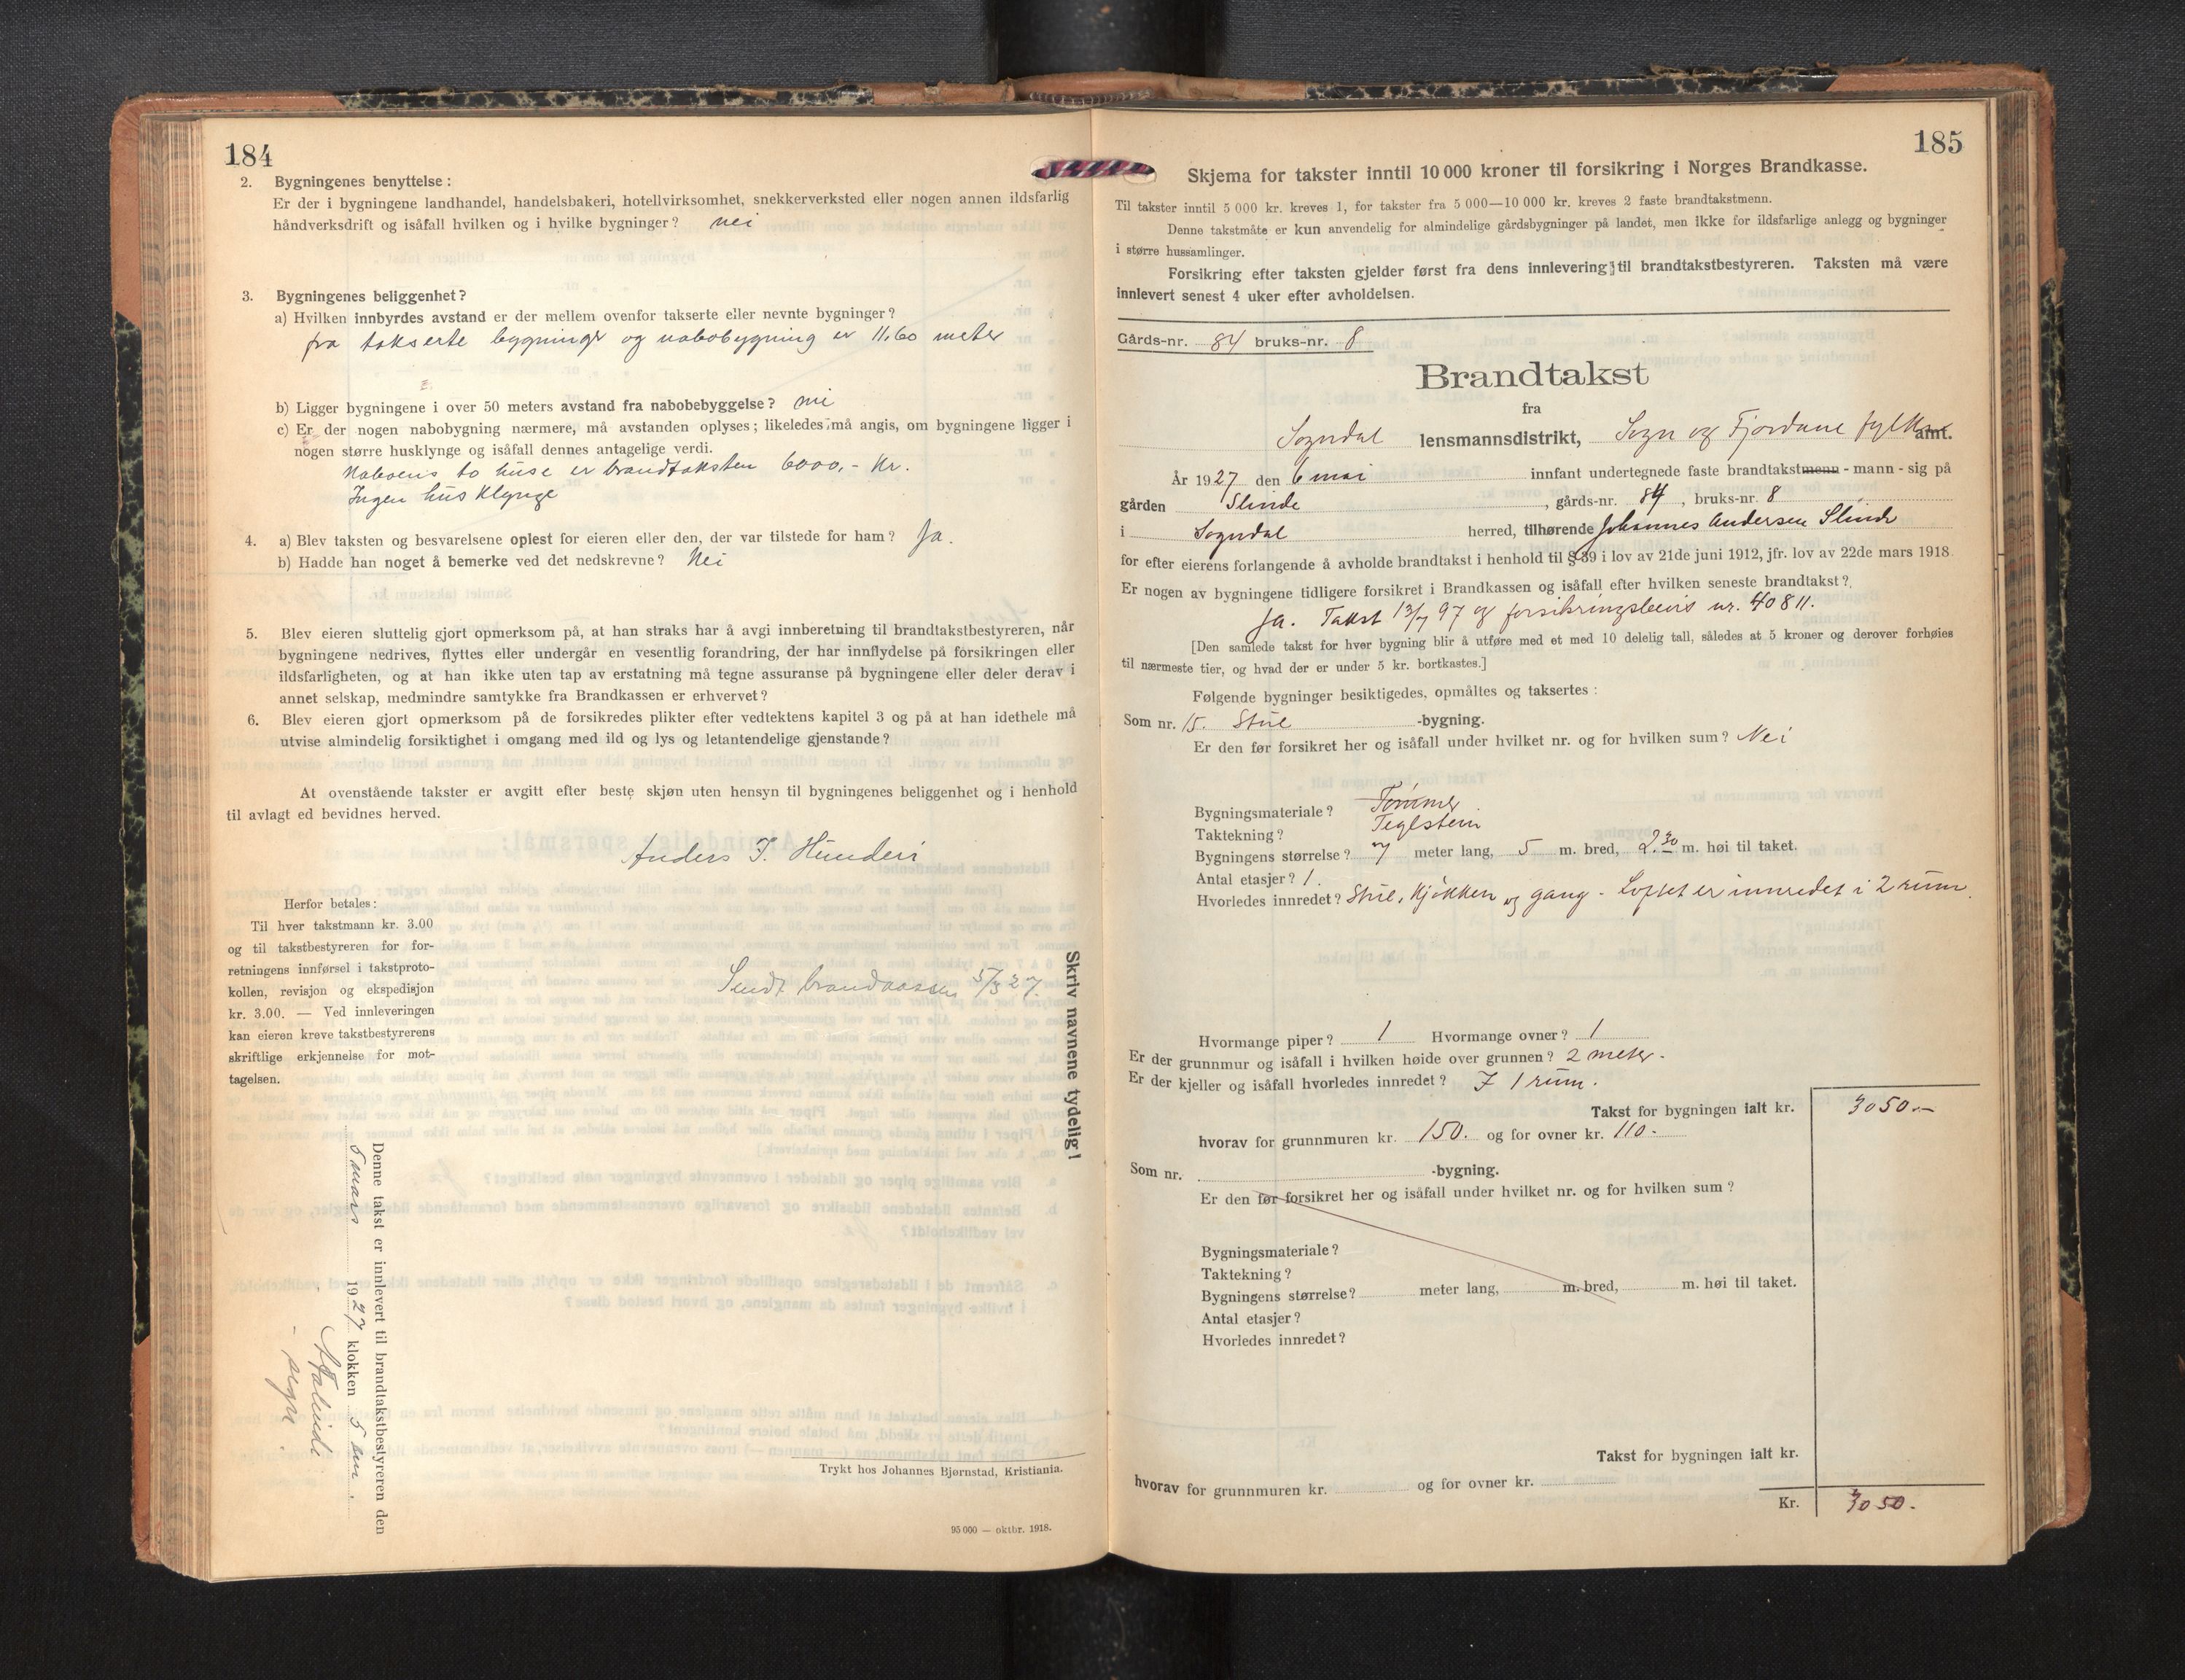 184
2. Bygningenes benyttelse:
Er der i bygningene landhandel, handelsbakeri, hotellvirksomhet, snekkerverksted eller nogen annen ildsfarlig
håndverksdrift og isåfall hvilken og i hvilke bygninger? nei
3. Bygningenes beliggenhet?
a) Hvilken innbyrdes avstand er der mellem ovenfor takserte eller nevnte bygninger?
fra takserte bygninger og nabobygning er 11,60 meter
b) Ligger bygningene i over 50 meters avstand fra nabobebyggelse? nei
c) Er der nogen nabobygning nærmere, må avstanden oplyses; likeledes må angis, om bygningene ligger i
nogen større husklynge og isåfall dennes antagelige verdi.
Naboens to huse er brandtaksten 6000,- Kr.
Ingen hus klynge
4. a) Blev taksten og besvarelsene oplest for eieren eller den, der var tilstede for ham? Ja.
b) Hadde han noget å bemerke ved det nedskrevne? Nei
5. Blev eieren sluttelig gjort opmerksom på, at han straks har å avgi innberetning til brandtakstbestyreren, når
bygningene nedrives, flyttes eller undergår en vesentlig forandring, der har innflydelse på forsikringen eller
ildsfarligheten, og at han ikke uten tap av erstatning må tegne assuranse på bygningene eller deler derav i
annet selskap, medmindre samtykke fra Brandkassen er erhvervet?
6. Blev eieren gjort opmerksom på de forsikredes plikter efter vedtektens kapitel 3 og på at han idethele må
utvise almindelig forsiktighet i omgang med ild og lys og letantendelige gjenstande?
At ovenstående takster er avgitt efter beste skjøn uten hensyn til bygningenes beliggenhet og i henhold
til avlagt ed bevidnes herved.
Anders I. Hunderi
Herfor betales:
Til hver takstmann kr. 3.00
og til takstbestyreren for for-
retningens innførsel i takstproto-
kollen, revisjon og ekspedisjon
kr. 3.00. — Ved innleveringen
kan eieren kreve takstbestyrerens
skriftlige erkjennelse for mot-
tagelsen.
Sendt brandkassen 5/3 27.
Skriv navnene tydelig!
Denne takst er innlevert til brandtakstbestyreren den
5 mars 1927 klokken 5 em.
- sogn.
Trykt hos Johannes Bjørnstad, Kristiania.
95 000 — oktbr. 1918.
185
Skjema for takster inntil 10 000 kroner til forsikring i Norges Brandkasse.
Til takster inntil 5 000 kr. kreves 1, for takster fra 5 000—10 000 kr. kreves 2 faste brandtakstmenn.
Denne takstmåte er kun anvendelig for almindelige gårdsbygninger på landet, men ikke for ildsfarlige anlegg og bygninger
i større hussamlinger.
Forsikring efter taksten gjelder først fra dens innlevering til brandtakstbestyreren. Taksten må være
innlevert senest 4 uker efter avholdelsen.
Gårds-nr. 84 bruks-nr. 8
Brandtakst
fra
Sogndal lensmannsdistrikt, Sogn og Fjordane fylke amt.
År 1927 den 6 mai innfant undertegnede faste brandtakstmenn - mann - sig på
gården Slinde, gårds-nr. 84, bruks-nr. 8
i Sogndal herred, tilhørende Johannes Andersen Slinde
for efter eierens forlangende å avholde brandtakst i henhold til § 39 i lov av 21de juni 1912, jfr. lov av 22de mars 1918.
Er nogen av bygningene tidligere forsikret i Brandkassen og isåfall efter hvilken seneste brandtakst?
Ja. Takst 13/7 97 og forsikringsbevis nr. 40811.
[Den samlede takst for hver bygning blir å utføre med et med 10 delelig tall, således at 5 kroner og derover forhøies
til nærmeste tier, og hvad der er under 5 kr. bortkastes.]
Følgende bygninger besiktigedes, opmåltes og taksertes:
Som nr. 15. Stue -bygning.
Er den før forsikret her og isåfall under hvilket nr. og for hvilken sum? Nei
Bygningsmateriale? Tømmer
Taktekning? Teglstein
Bygningens størrelse? 7 meter lang, 5 m. bred, 2.30 m. høi til taket.
Antal etasjer? 1.
Hvorledes innredet? Stue, Kjøkken og gang - Loftet er innredet i 2 rum.
Hvormange piper? 1 Hvormange ovner? 1
Er der grunnmur og isåfall i hvilken høide over grunnen? 2 meter.
Er der kjeller og isåfall hvorledes innredet? I 1 rum.
Takst for bygningen ialt kr. 3050.-
hvorav for grunnmuren kr. 150. og for ovner kr. 110.-
Som nr. -bygning.
Er den før forsikret her og isåfall under hvilket nr. og for hvilken sum?
Bygningsmateriale?
Taktekning?
Bygningens størrelse? meter lang, m. bred, m. høi til taket.
Antal etasjer?
Hvorledes innredet?
Takst for bygningen ialt kr.
hvorav for grunnmuren kr. og for ovner kr.
Kr. 3050.-